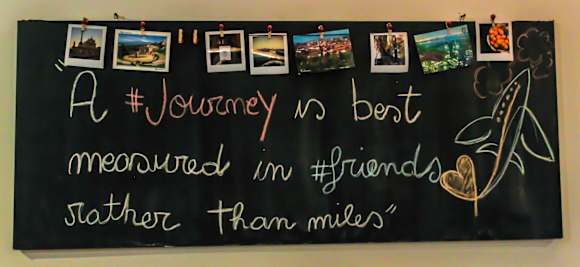 "A #Journey is best
measured in #friends
rather than miles"